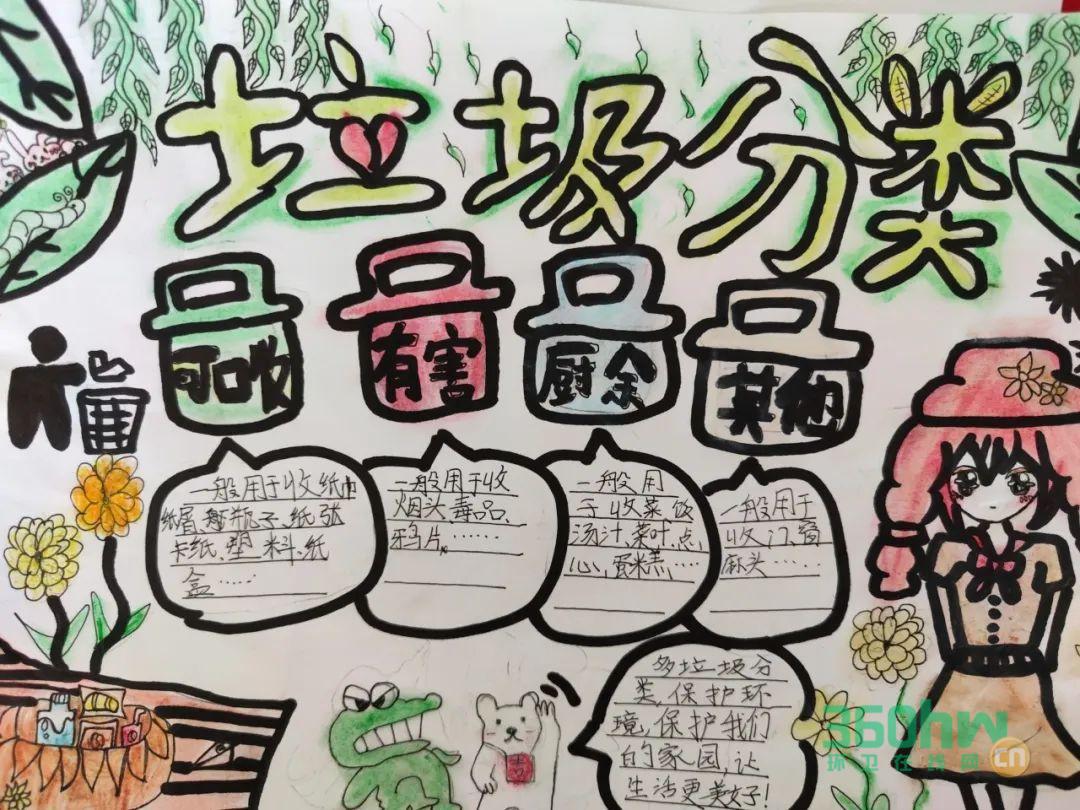 垃圾分类
可回收
有害
厨余
其他
一般用于收纸巾
纸屑、瓶子、纸张
卡纸、塑料、纸
盒……
一般用于收
烟头、毒品、
鸦片……
一般用
于收菜、饭
汤汁、菜叶、点
心、蛋米羔……
一般用于
收门、窗
麻头……
多垃圾分
类,保护环
境,保护我们
的家园,让
生活更美好!
吉
360hw
环卫在线网
CN